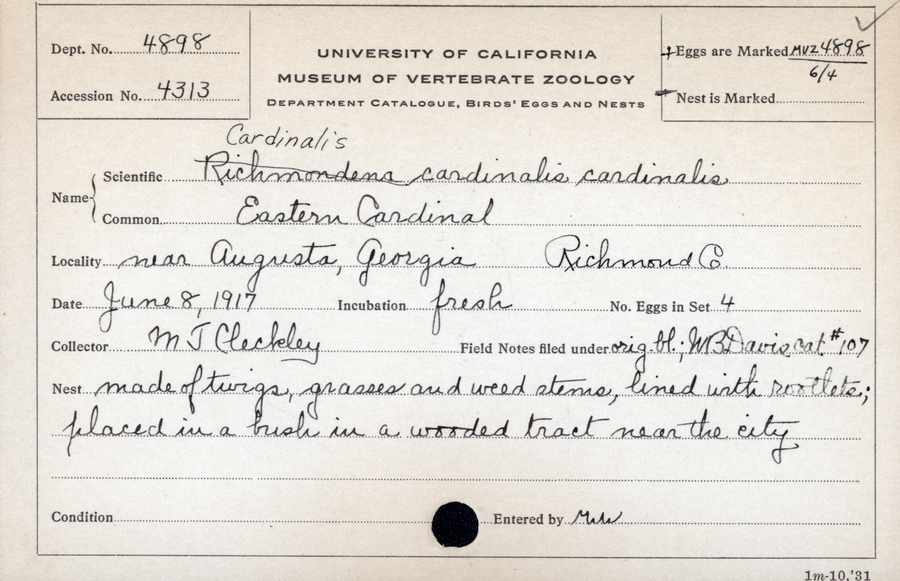 Dept. No. 4898
Accession No. 4313
UNIVERSITY OF CALIFORNIA
MUSEUM OF VERTEBRATE ZOOLOGY
DEPARTMENT CATALOGUE, BIRDS' EGGS AND NESTS
Eggs are Marked MVZ 4898
6/4
Nest is Marked
Cardinalis
Name Scientific Richmondena cardinalis cardinalis
Common Eastern Cardinal
Locality near Augusta, Georgia Richmond Co.
Date June 8, 1917 Incubation fresh No. Eggs in Set 4
Collector M J Cleckley Field Notes filed under orig. bl.; WB Davis, cat. #107
Nest made of twigs, grasses and weed stems, lined with rootlets;
placed in a bush in a wooded tract near the city
Condition Entered by
1m-10,'31